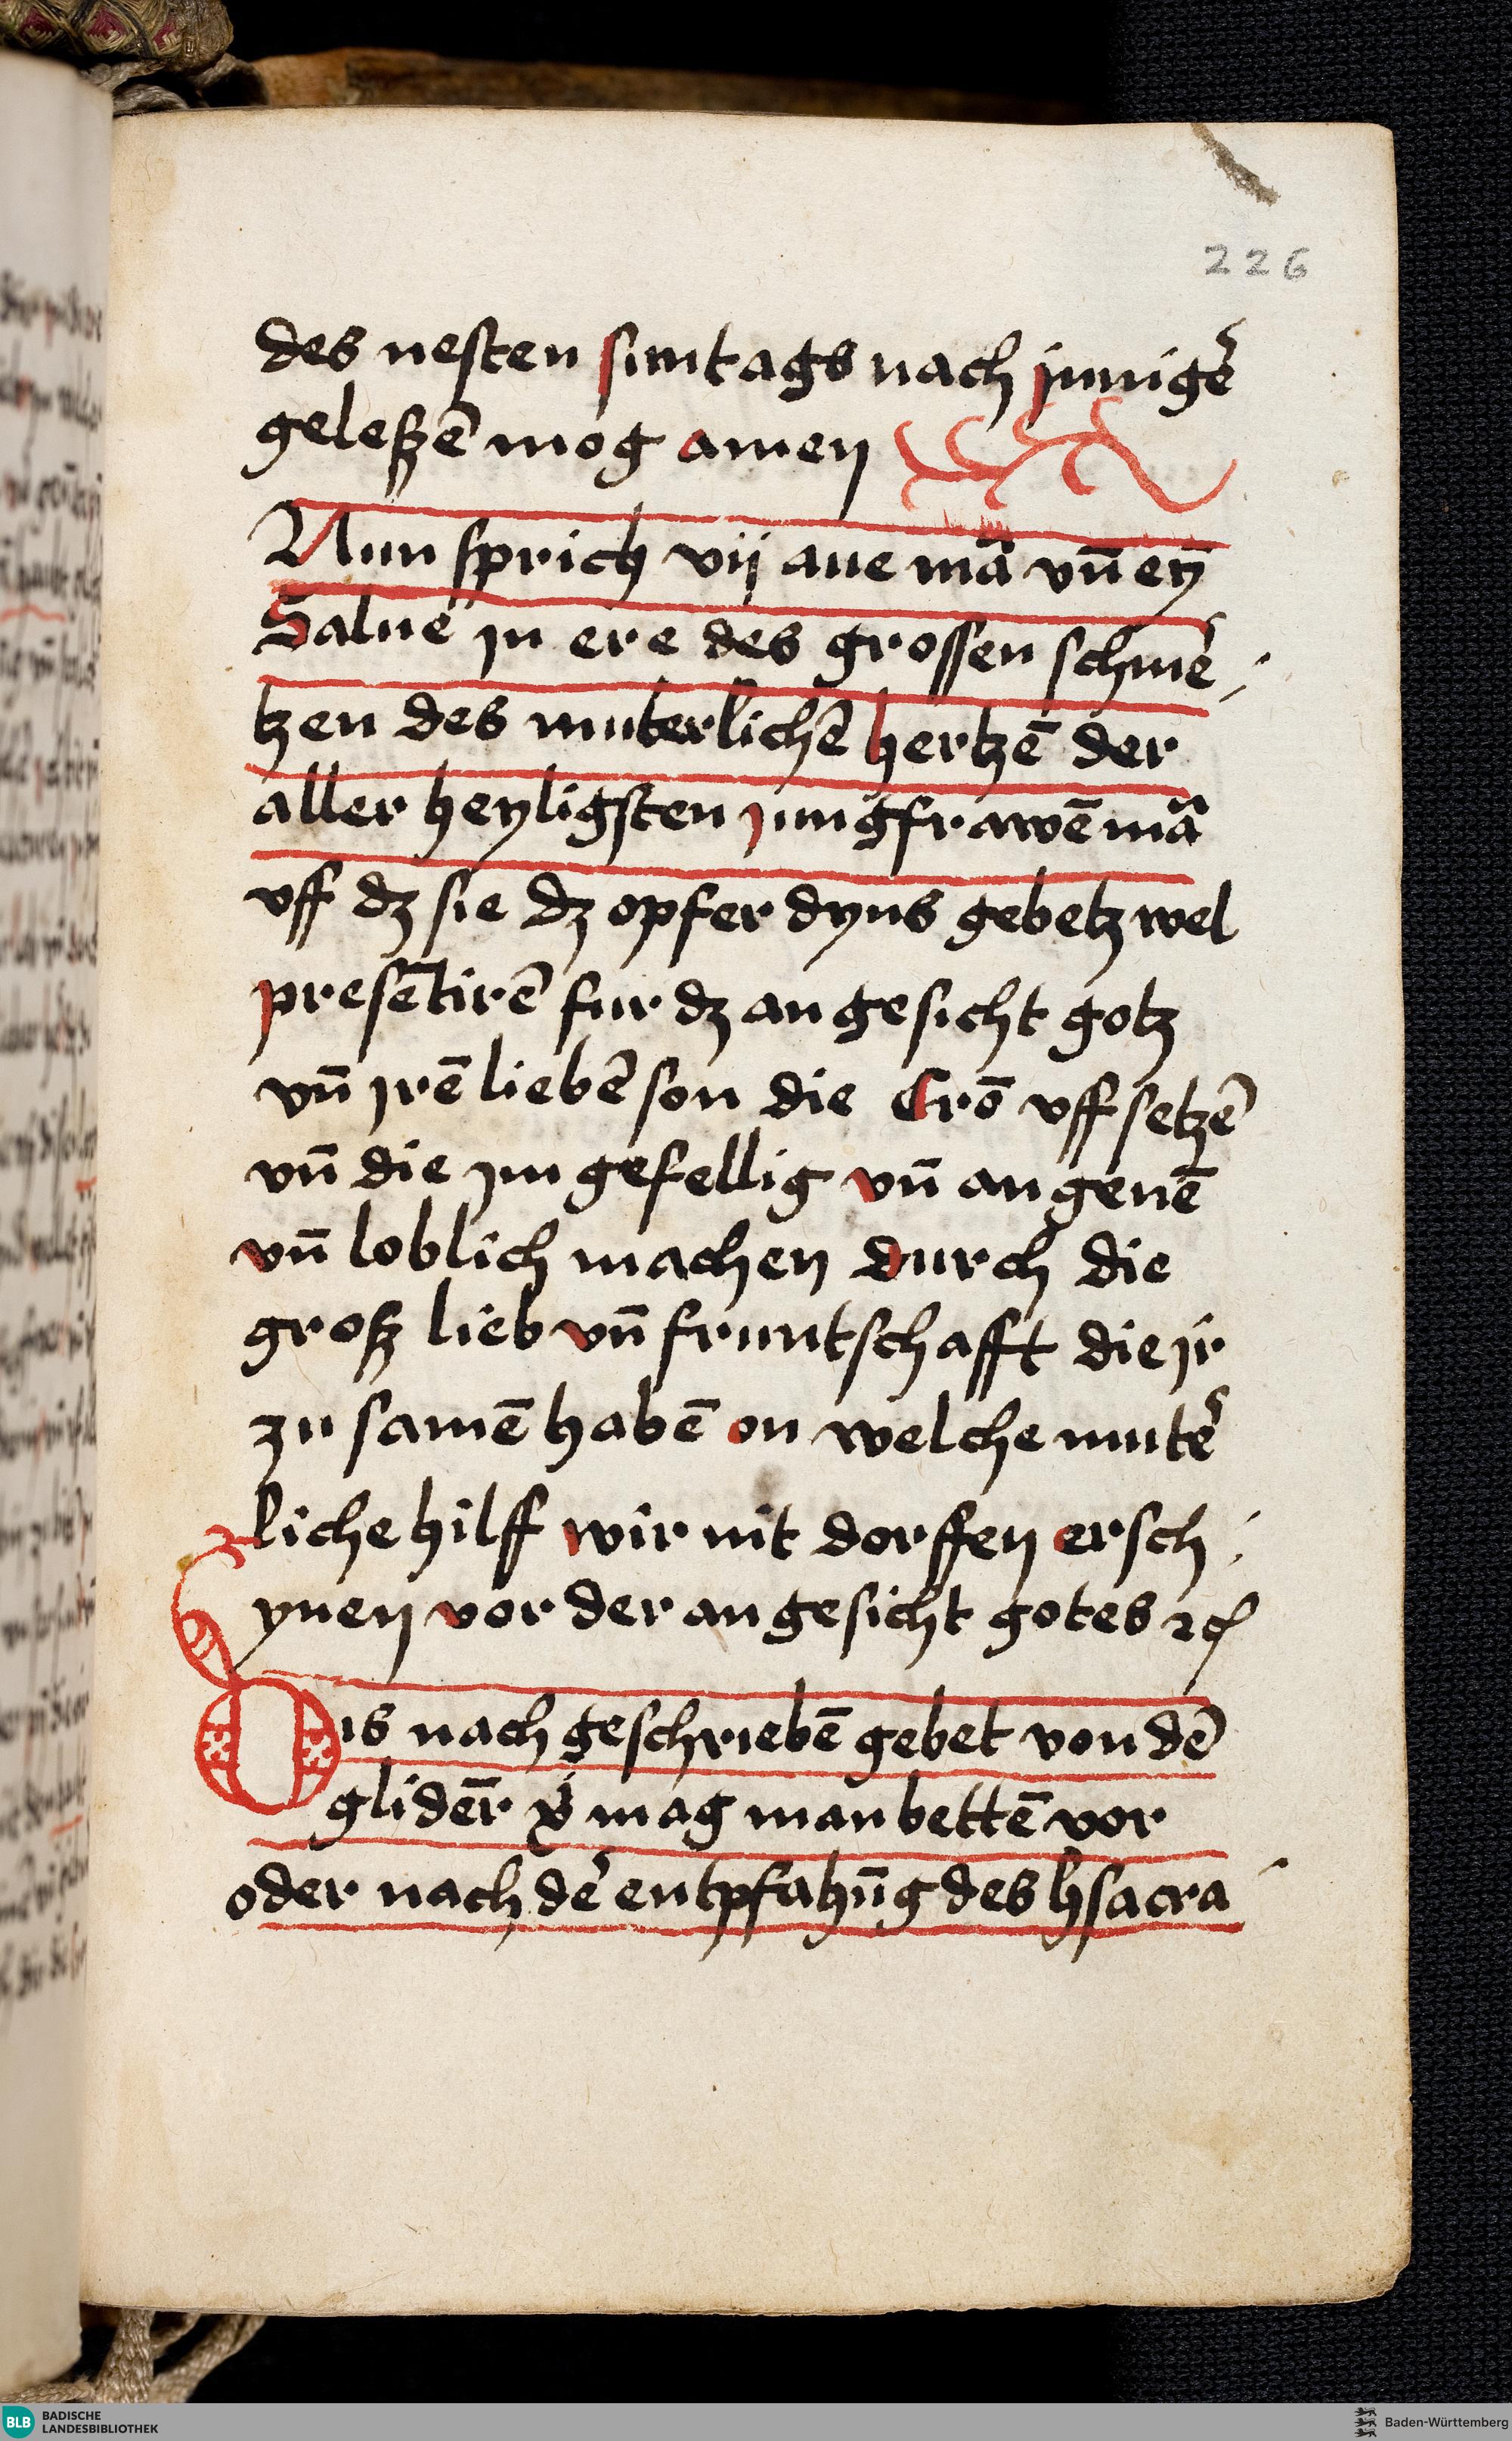 226
des nesten suntags nach jnnigẽ
geleßẽ mog amen
Nun sprich vij aue mã vñ eȳ
Salue jn ere des grossen schmẽ
tzen des muterlichẽ hertzẽ der
aller heyligsten jungfrawẽ mã
vff dz sie dz opfer dyns gebetz wel
presẽtirẽ fur dz an gesicht gotz
vñ jrẽ liebẽ son die Crõ vff setzẽ
vñ die jm gefellig vñ an genẽ
vñ loblich machen durch die
groß lieb vñ fruntschafft die jr
zu samẽ habẽ on welche mutẽ
liche hilff wir nit dorffen ersch
ynen vor der an gesicht gotes ꝛc
Dis nach geschriebẽ gebet von dẽ
glidẽr mag man bettẽ vor
oder nach dẽ entpfahũg des h sacra
BLB BADISCHE
LANDESBIBLIOTHEK
Baden-Württemberg